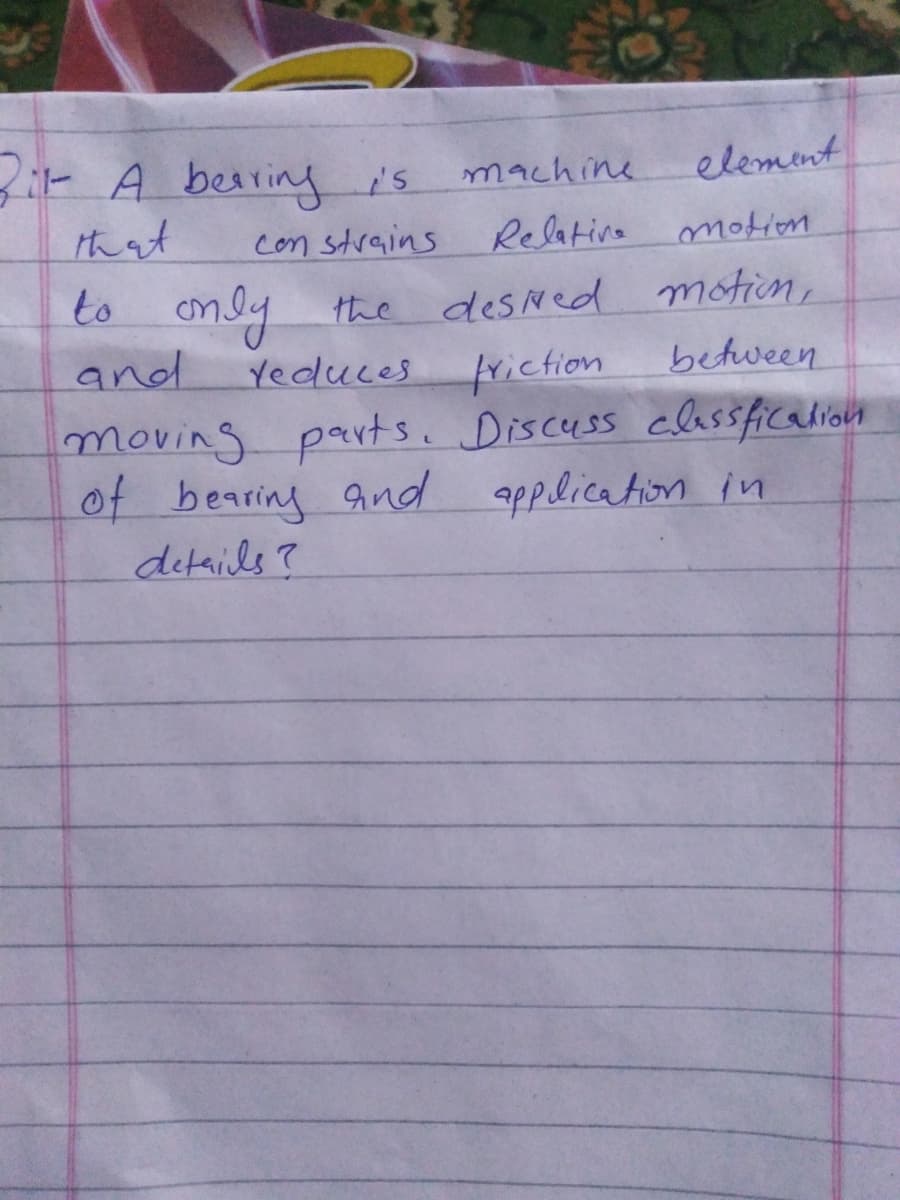 A bearing is machine element
that constrains Relative motion
to only the desired motion,
and reduces friction between
moving parts. Discuss classfication
of bearing and application in
details?